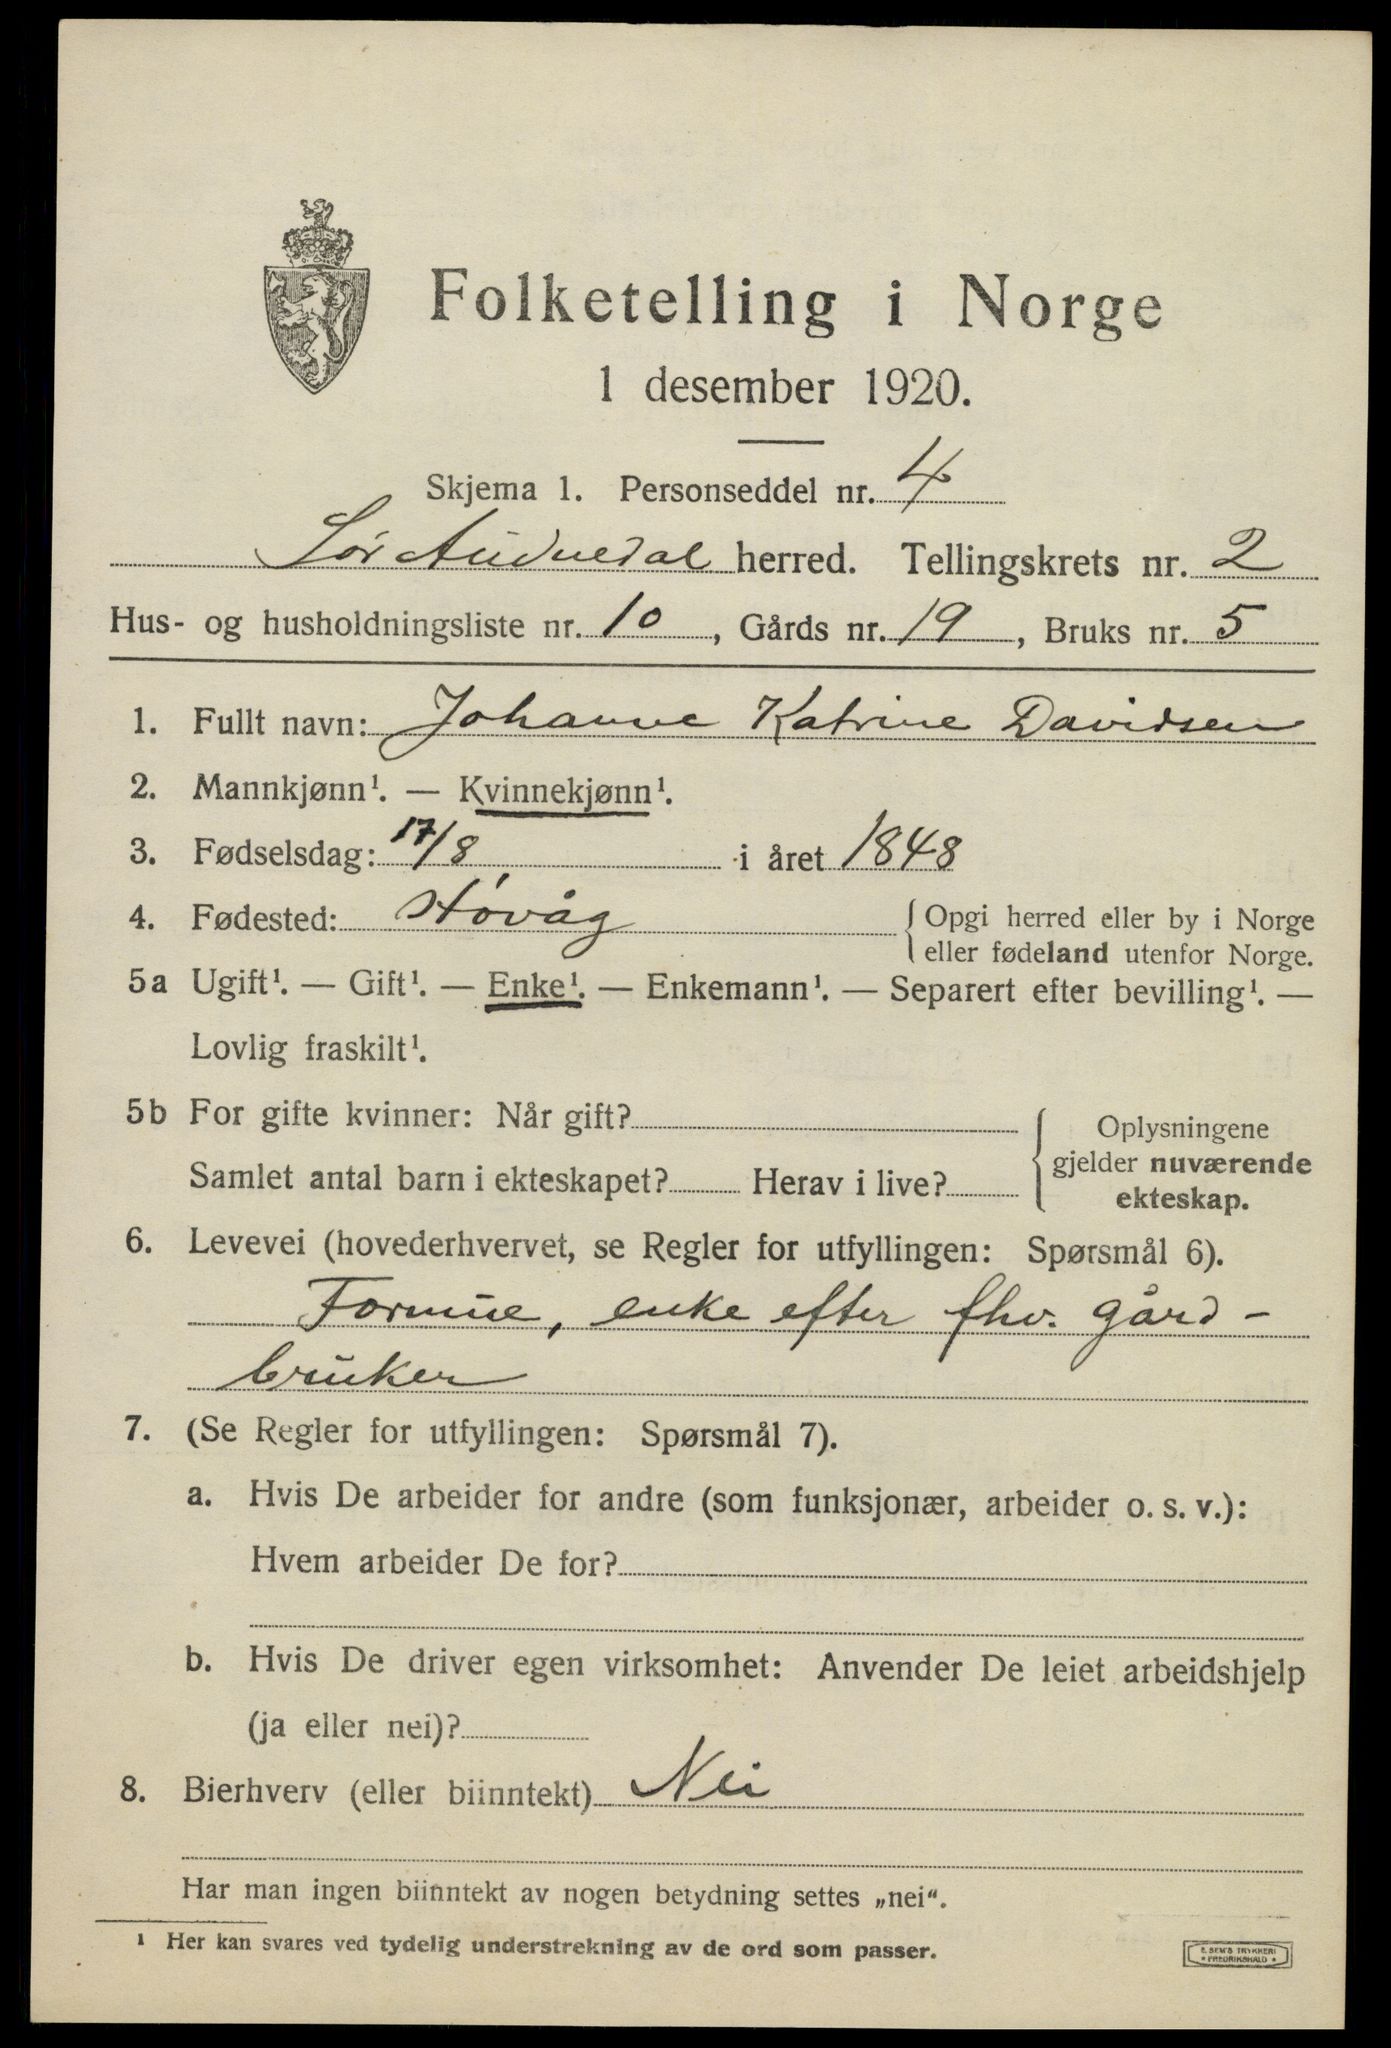 Folketelling i Norge
1 desember 1920.
Skjema 1. Personseddel nr. 4
Sør Audnedal herred. Tellingskrets nr. 2
Hus- og husholdningsliste nr. 10, Gårds nr. 19, Bruks nr. 5
1. Fullt navn: Johanne Katrine Davidsen
2. Mannkjønn¹. — Kvinnekjønn¹.
3. Fødselsdag: 17/8 i året 1848
4. Fødested: Høvåg {Opgi herred eller by i Norge
eller fødeland utenfor Norge.
5a Ugift¹. — Gift¹. — Enke¹. — Enkemann¹. — Separert efter bevilling¹. —
Lovlig fraskilt¹.
5b For gifte kvinner: Når gift?
Samlet antal barn i ekteskapet? Herav i live?
{Oplysningene
gjelder nuværende
ekteskap.
6. Levevei (hovederhvervet, se Regler for utfyllingen: Spørsmål 6).
Formue, enke efter fhv. gård-
bruker
7. (Se Regler for utfyllingen: Spørsmål 7).
a. Hvis De arbeider for andre (som funksjonær, arbeider o. s. v.):
Hvem arbeider De for?
b. Hvis De driver egen virksomhet: Anvender De leiet arbeidshjelp
(ja eller nei)?
8. Bierhverv (eller biinntekt) Nei
Har man ingen biinntekt av nogen betydning settes „nei“.
¹ Her kan svares ved tydelig understrekning av de ord som passer.
E. SEM'S TRYKKERI
* FREDRIKSHALD *